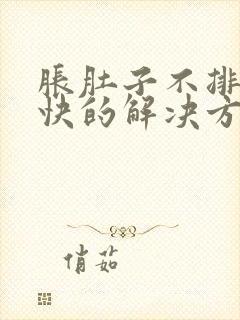 胀肚子不排
快的解决方
俏茹